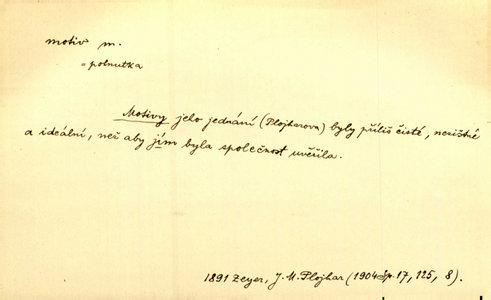 motiv m.
= pohnutka
Motivy jeho jednání (Plojharova) byly příliš čisté, nezištné
a ideální, než aby jim byla společnost uvěřila.
1891 Zeyer, J. M. Plojhar (1904 sp. 17, 125, 8).